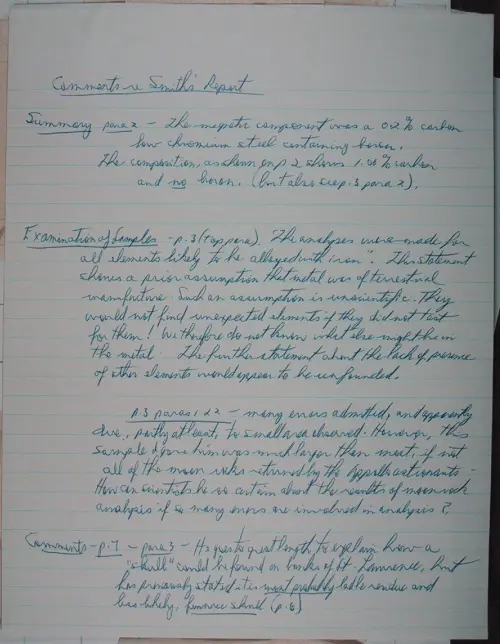 Comments re Smith's Report
Summary para 2 - The magnetic component was a 0.2% carbon
low chromium steel containing boron.
The composition, as shown on p 2 shows 1.00% carbon
and no boron. (but also see p. 3 para 2).
Examination of Samples - p. 3 (top para). The analyses were made for
all elements likely to be alloyed with iron". This statement
shows a prior assumption that metal was of terrestrial
manufacture. Such an assumption is unscientific. They
would not find unexpected elements if they did not test
for them! We therefore do not know what else might be in
the metal. The further statement about the lack of presence
of other elements would appear to be unfounded.
p. 3 paras 1 & 2 - many errors admitted, and apparently
due, partly at least, to small area observed. However, this
sample was much larger than most, if not
all of the moon rocks returned by the Apollo astronauts.
How can scientists be so certain about the results of moon rock
analysis if so many errors are involved in analyses?
Comments - p. 7 - para 3 - He goes to great length to explain how a
"skull" could be found on banks of St. Lawrence, but
has previously stated it is most probably ladle residue and
less likely, furnace skull (p. 6)